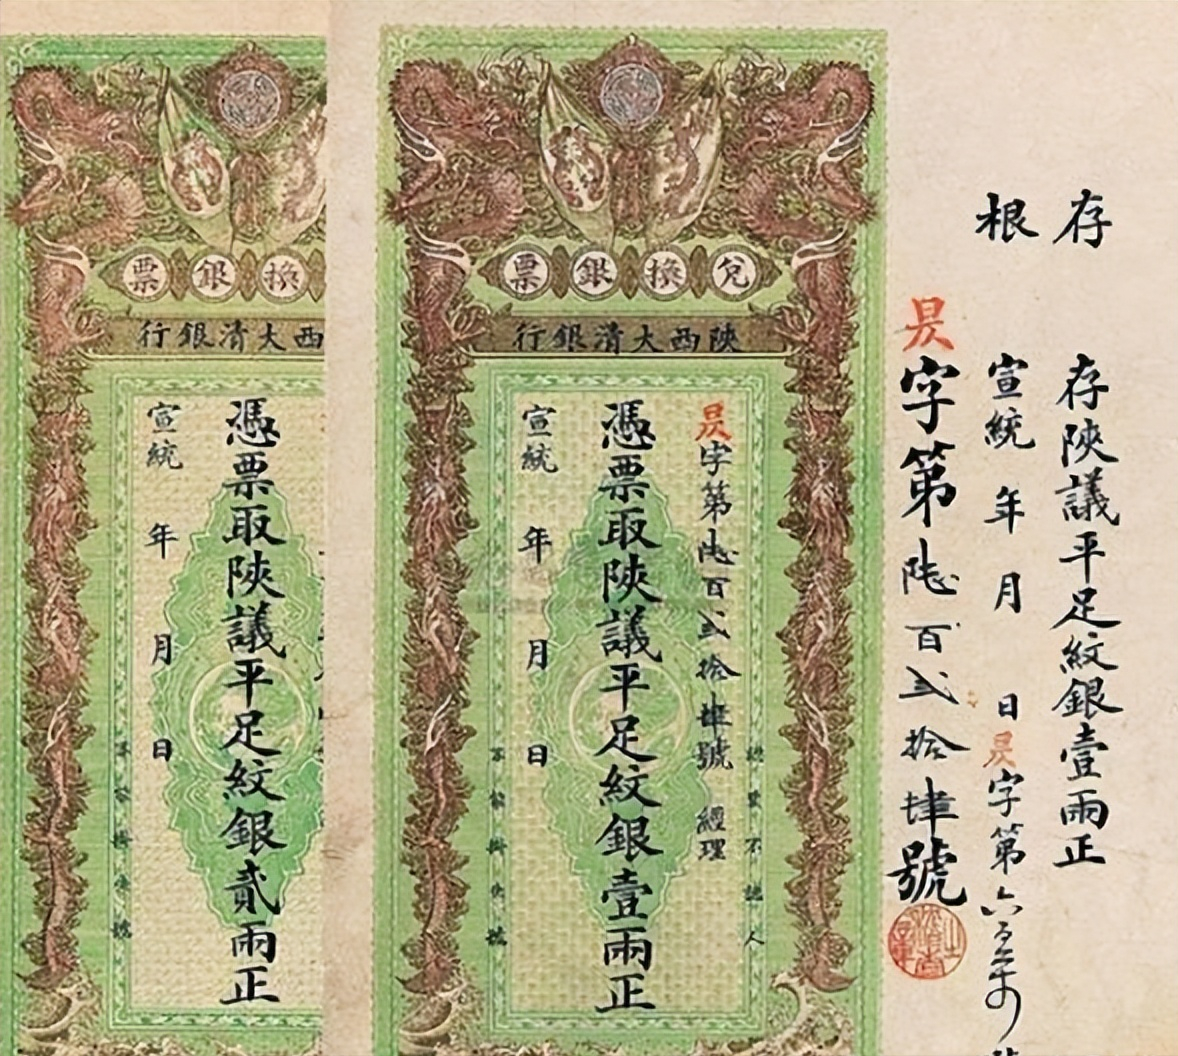 存根
存陝議平足紋銀壹兩正
宣統 年 月 日 昃字第六
昃字第陸百弍拾肆號
兌換銀票
陝西大清銀行
認票不認人
昃字第陸百弍拾肆號 經理
憑票取陝議平足紋銀壹兩正
宣統 年 月 日
換銀票
西大清銀行
憑票取陝議平足紋銀貳兩正
宣統 年 月 日